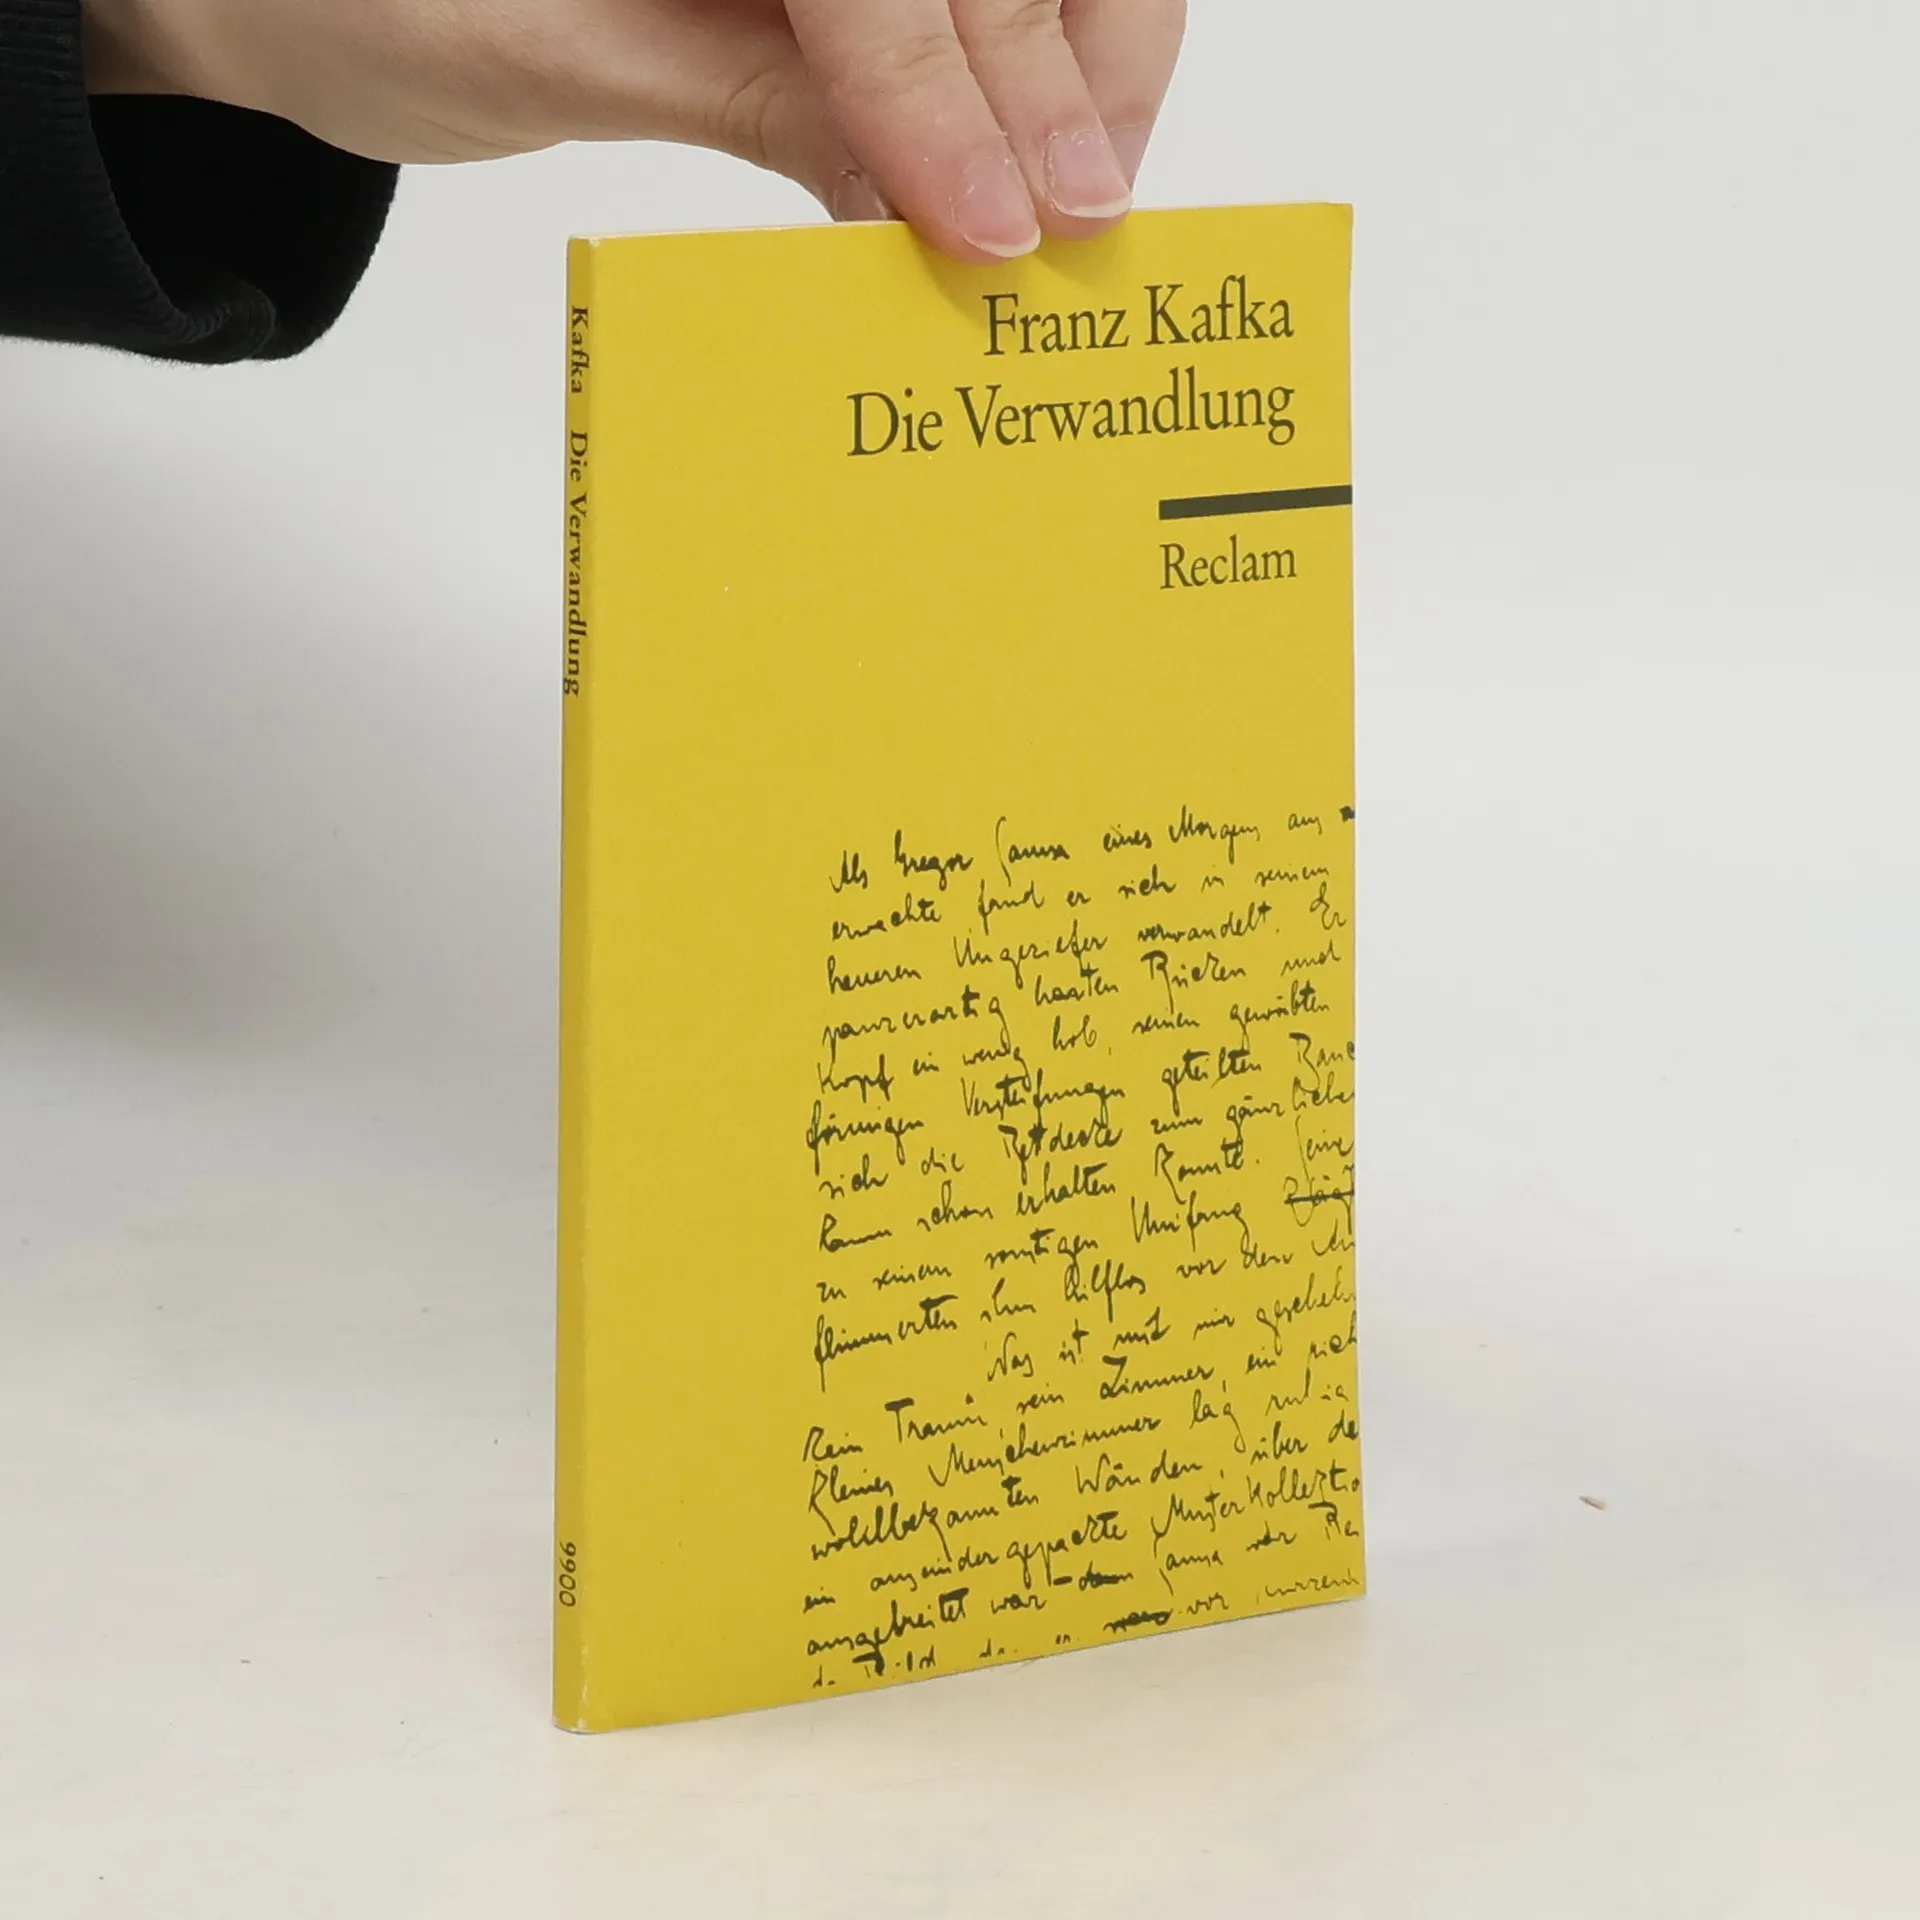 Franz Kafka
Die Verwandlung
Reclam
Kafka Die Verwandlung
9900
Als Gregor Samsa eines Morgens aus
erwachte fand er sich in seinem
heueren Ungeziefer verwandelt. Er
panzerartig harten Rücken und
Kopf ein wenig hob, seinen gewölbten
förmigen Versteifungen geteilten
sich die Bettdecke zum gänzlichen
kaum schon erhalten konnte. Seine
zu seinem sonstigen Umfang
flimmerten ihm hilflos vor den
Was ist mit mir
Kein Traum, sein Zimmer, ein
kleines Menschenzimmer lag ruhig
wohlbekannten Wänden, über
ein auseinandergepackte
ausgebreitet war – Samsa war
vor